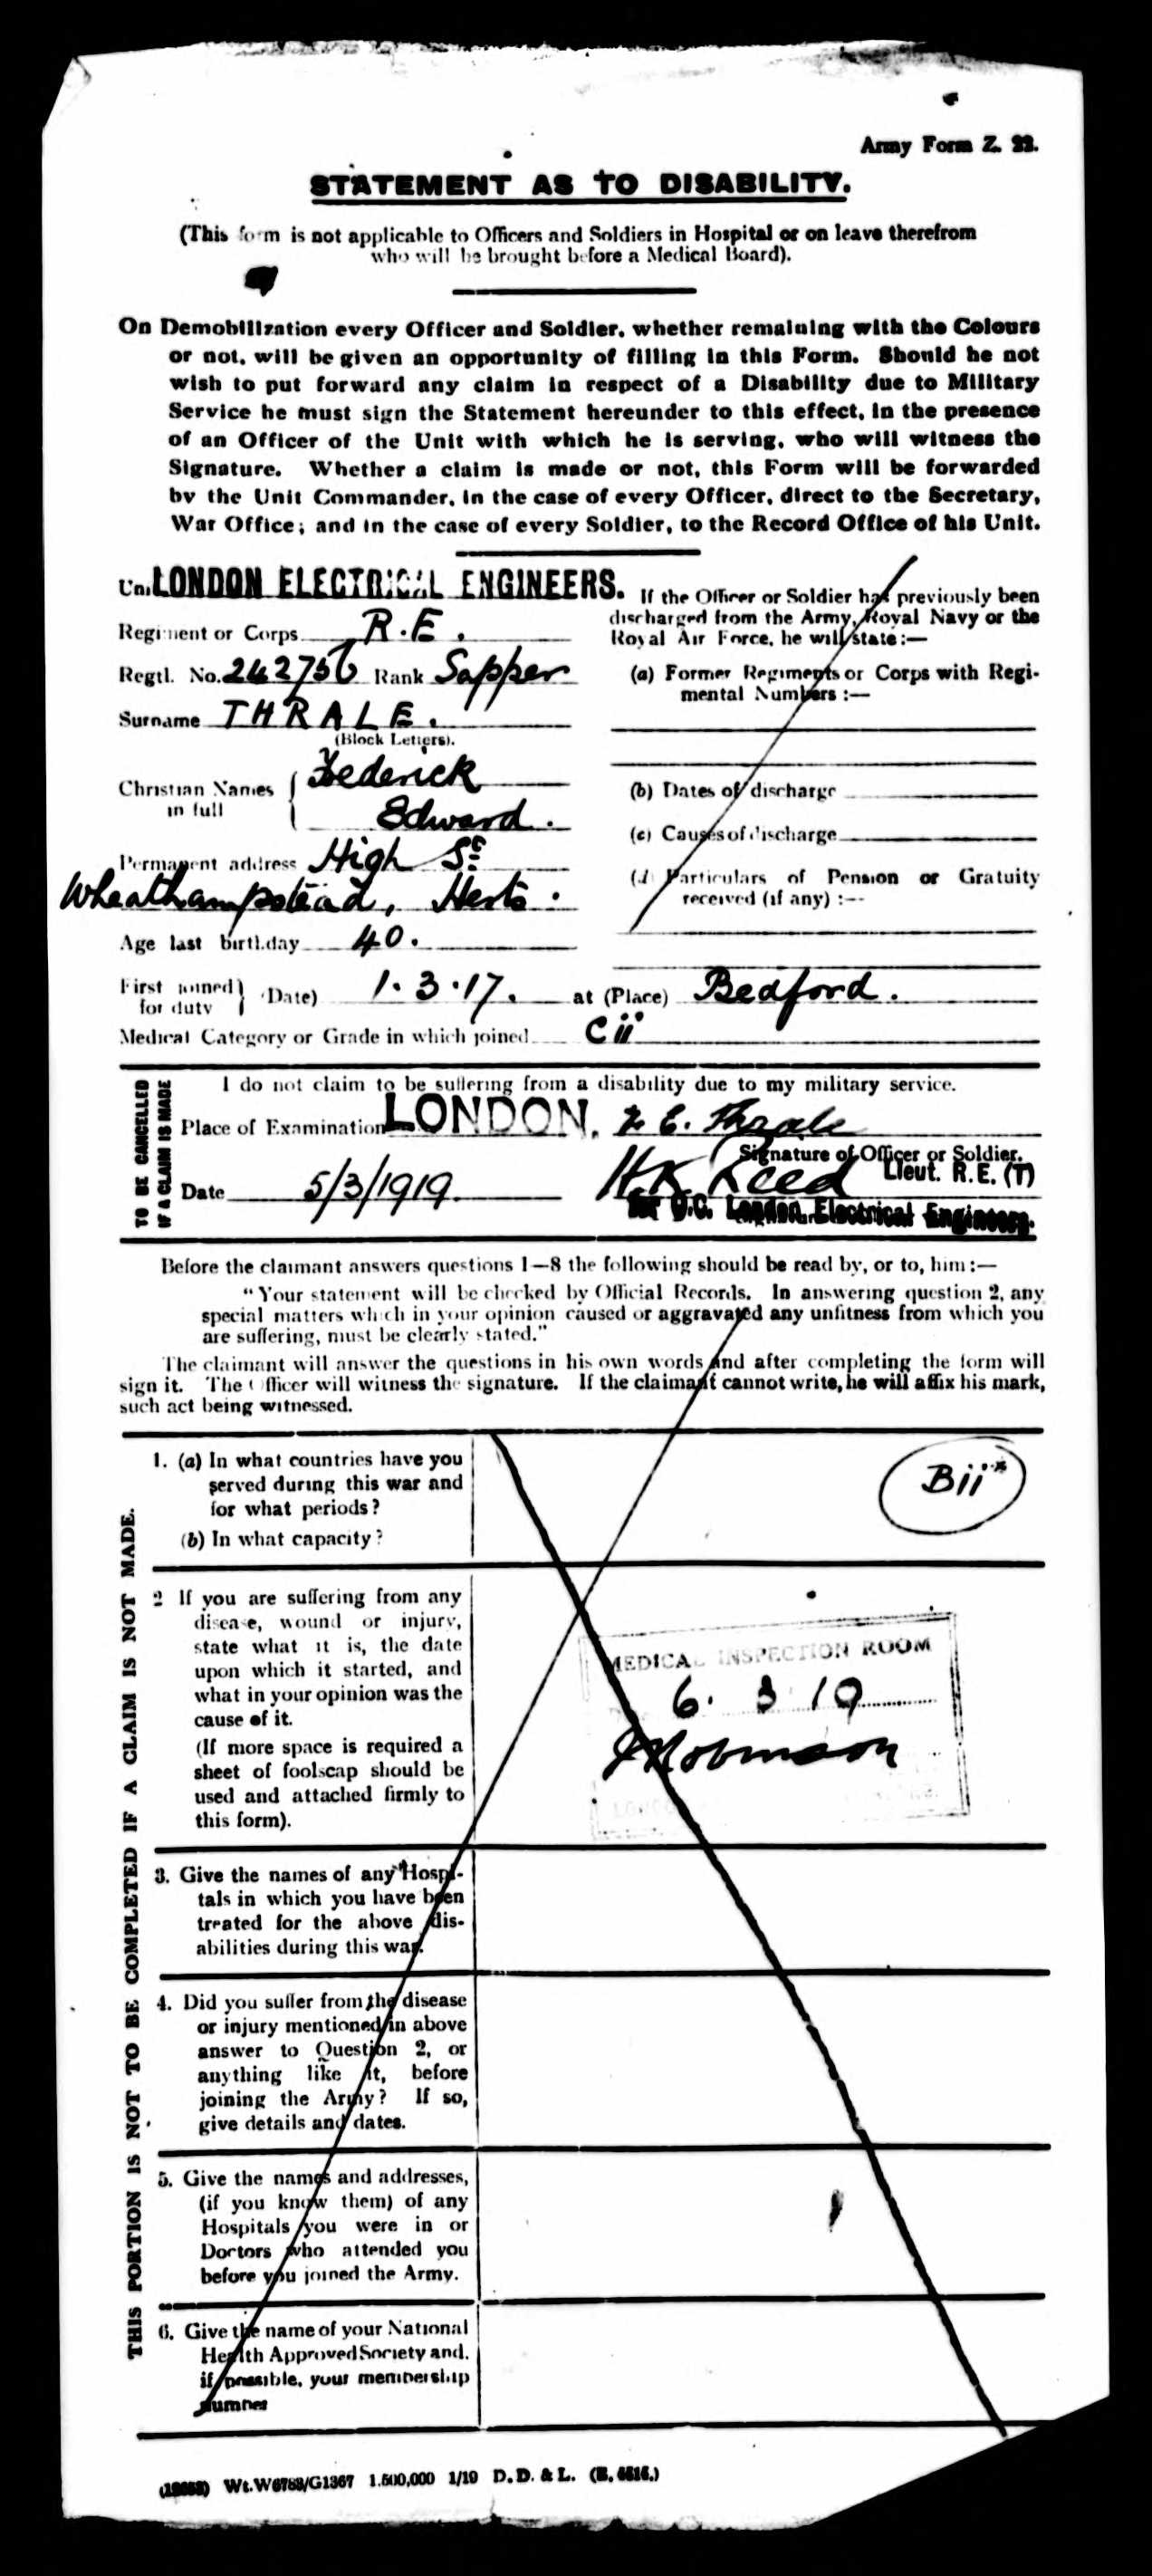 Army Form Z. 22.
STATEMENT AS TO DISABILITY.
(This form is not applicable to Officers and Soldiers in Hospital or on leave therefrom
who will be brought before a Medical Board).
On Demobilization every Officer and Soldier, whether remaining with the Colours
or not, will be given an opportunity of filling in this Form. Should he not
wish to put forward any claim in respect of a Disability due to Military
Service he must sign the Statement hereunder to this effect, in the presence
of an Officer of the Unit with which he is serving, who will witness the
Signature. Whether a claim is made or not, this Form will be forwarded
by the Unit Commander, in the case of every Officer, direct to the Secretary,
War Office; and in the case of every Soldier, to the Record Office of his Unit.
Unit LONDON ELECTRICAL ENGINEERS.
Regiment or Corps R.E.
Regtl. No. 242756 Rank Sapper
Surname THRALE.
(Block Letters).
Christian Names in full Frederick
Edward.
Permanent address High St
Wheathampstead, Herts.
Age last birthday 40.
If the Officer or Soldier has previously been
discharged from the Army, Royal Navy or the
Royal Air Force, he will state:—
(a) Former Regiments or Corps with Regi-
mental Numbers :—
(b) Dates of discharge
(c) Causes of discharge
(d) Particulars of Pension or Gratuity
received (if any) :—
First joined for duty (Date) 1.3.17. at (Place) Bedford.
Medical Category or Grade in which joined Cii
TO BE CANCELLED
IF A CLAIM IS MADE
I do not claim to be suffering from a disability due to my military service.
Place of Examination LONDON. F. E. Thrale
Signature of Officer or Soldier.
Date 5/3/1919 H.K. Reed Lieut. R.E. (T)
for O.C. London Electrical Engineers.
Before the claimant answers questions 1—8 the following should be read by, or to, him:—
"Your statement will be checked by Official Records. In answering question 2, any
special matters which in your opinion caused or aggravated any unfitness from which you
are suffering, must be clearly stated."
The claimant will answer the questions in his own words and after completing the form will
sign it. The Officer will witness the signature. If the claimant cannot write, he will affix his mark,
such act being witnessed.
THIS PORTION IS NOT TO BE COMPLETED IF A CLAIM IS NOT MADE.
1. (a) In what countries have you
served during this war and
for what periods?
(b) In what capacity?
Bii*
2 If you are suffering from any
disease, wound or injury,
state what it is, the date
upon which it started, and
what in your opinion was the
cause of it.
(If more space is required a
sheet of foolscap should be
used and attached firmly to
this form).
MEDICAL INSPECTION ROOM
6. 3 19
Robinson
3. Give the names of any Hospi-
tals in which you have been
treated for the above dis-
abilities during this war.
4. Did you suffer from the disease
or injury mentioned in above
answer to Question 2, or
anything like it, before
joining the Army? If so,
give details and dates.
5. Give the names and addresses,
(if you know them) of any
Hospitals you were in or
Doctors who attended you
before you joined the Army.
6. Give the name of your National
Health Approved Society and,
if possible, your membership
number
Wt.W6783/G1367 1,500,000 1/19 D.D. & L.